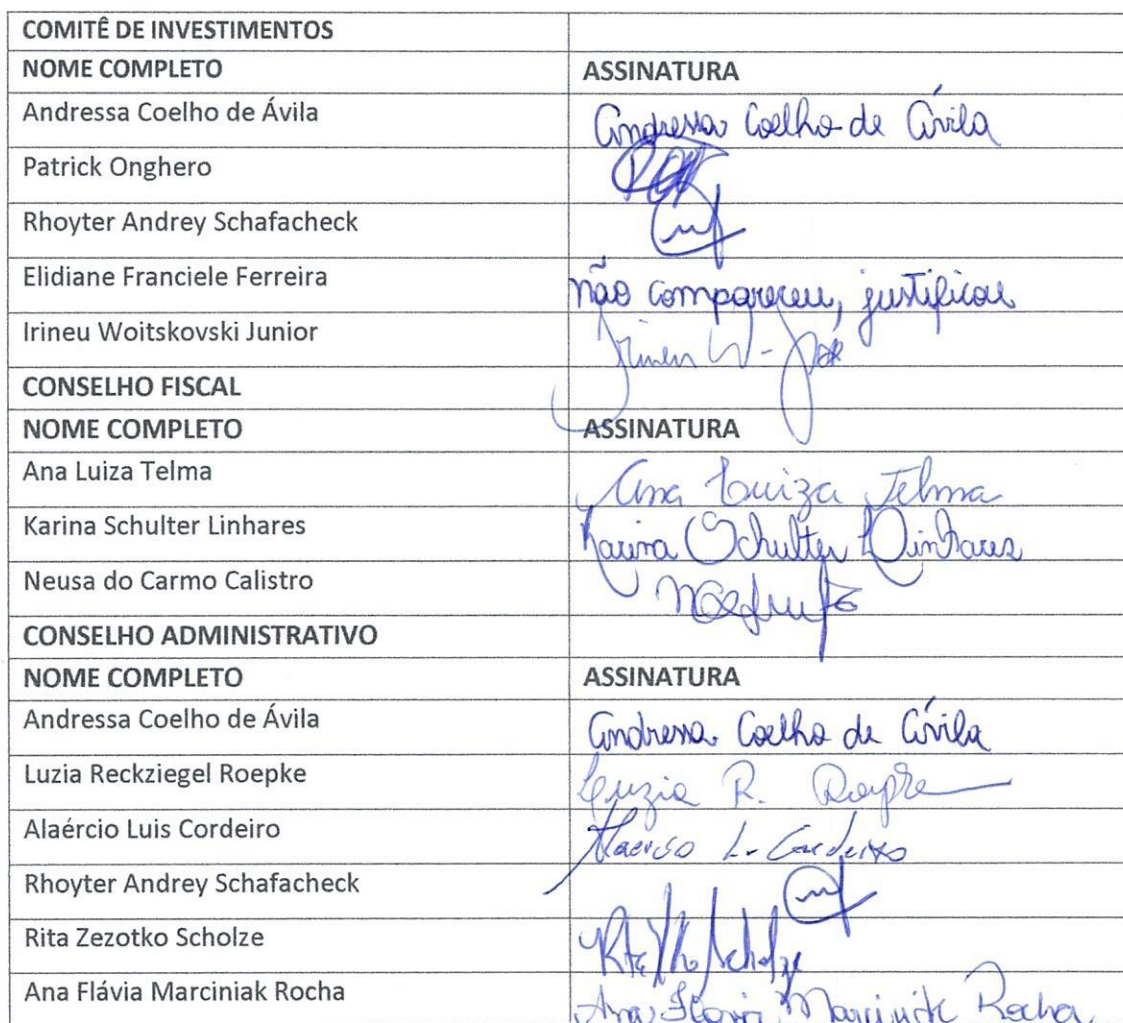 COMITÊ DE INVESTIMENTOS
NOME COMPLETO ASSINATURA
Andressa Coelho de Ávila Andressa Coelho de Ávila
Patrick Onghero
Rhoyter Andrey Schafacheck
Elidiane Franciele Ferreira não compareceu, justificou
Irineu Woitskovski Junior Irineu W-
CONSELHO FISCAL
NOME COMPLETO ASSINATURA
Ana Luiza Telma Ana Luiza Telma
Karina Schulter Linhares Karina Schulter Linhares
Neusa do Carmo Calistro
CONSELHO ADMINISTRATIVO
NOME COMPLETO ASSINATURA
Andressa Coelho de Ávila Andressa Coelho de Ávila
Luzia Reckziegel Roepke Luzia R. Roepke
Alaércio Luis Cordeiro Alaercio L. Cordeiro
Rhoyter Andrey Schafacheck
Rita Zezotko Scholze Scholze
Ana Flávia Marciniak Rocha Ana Flavia Marciniak Rocha